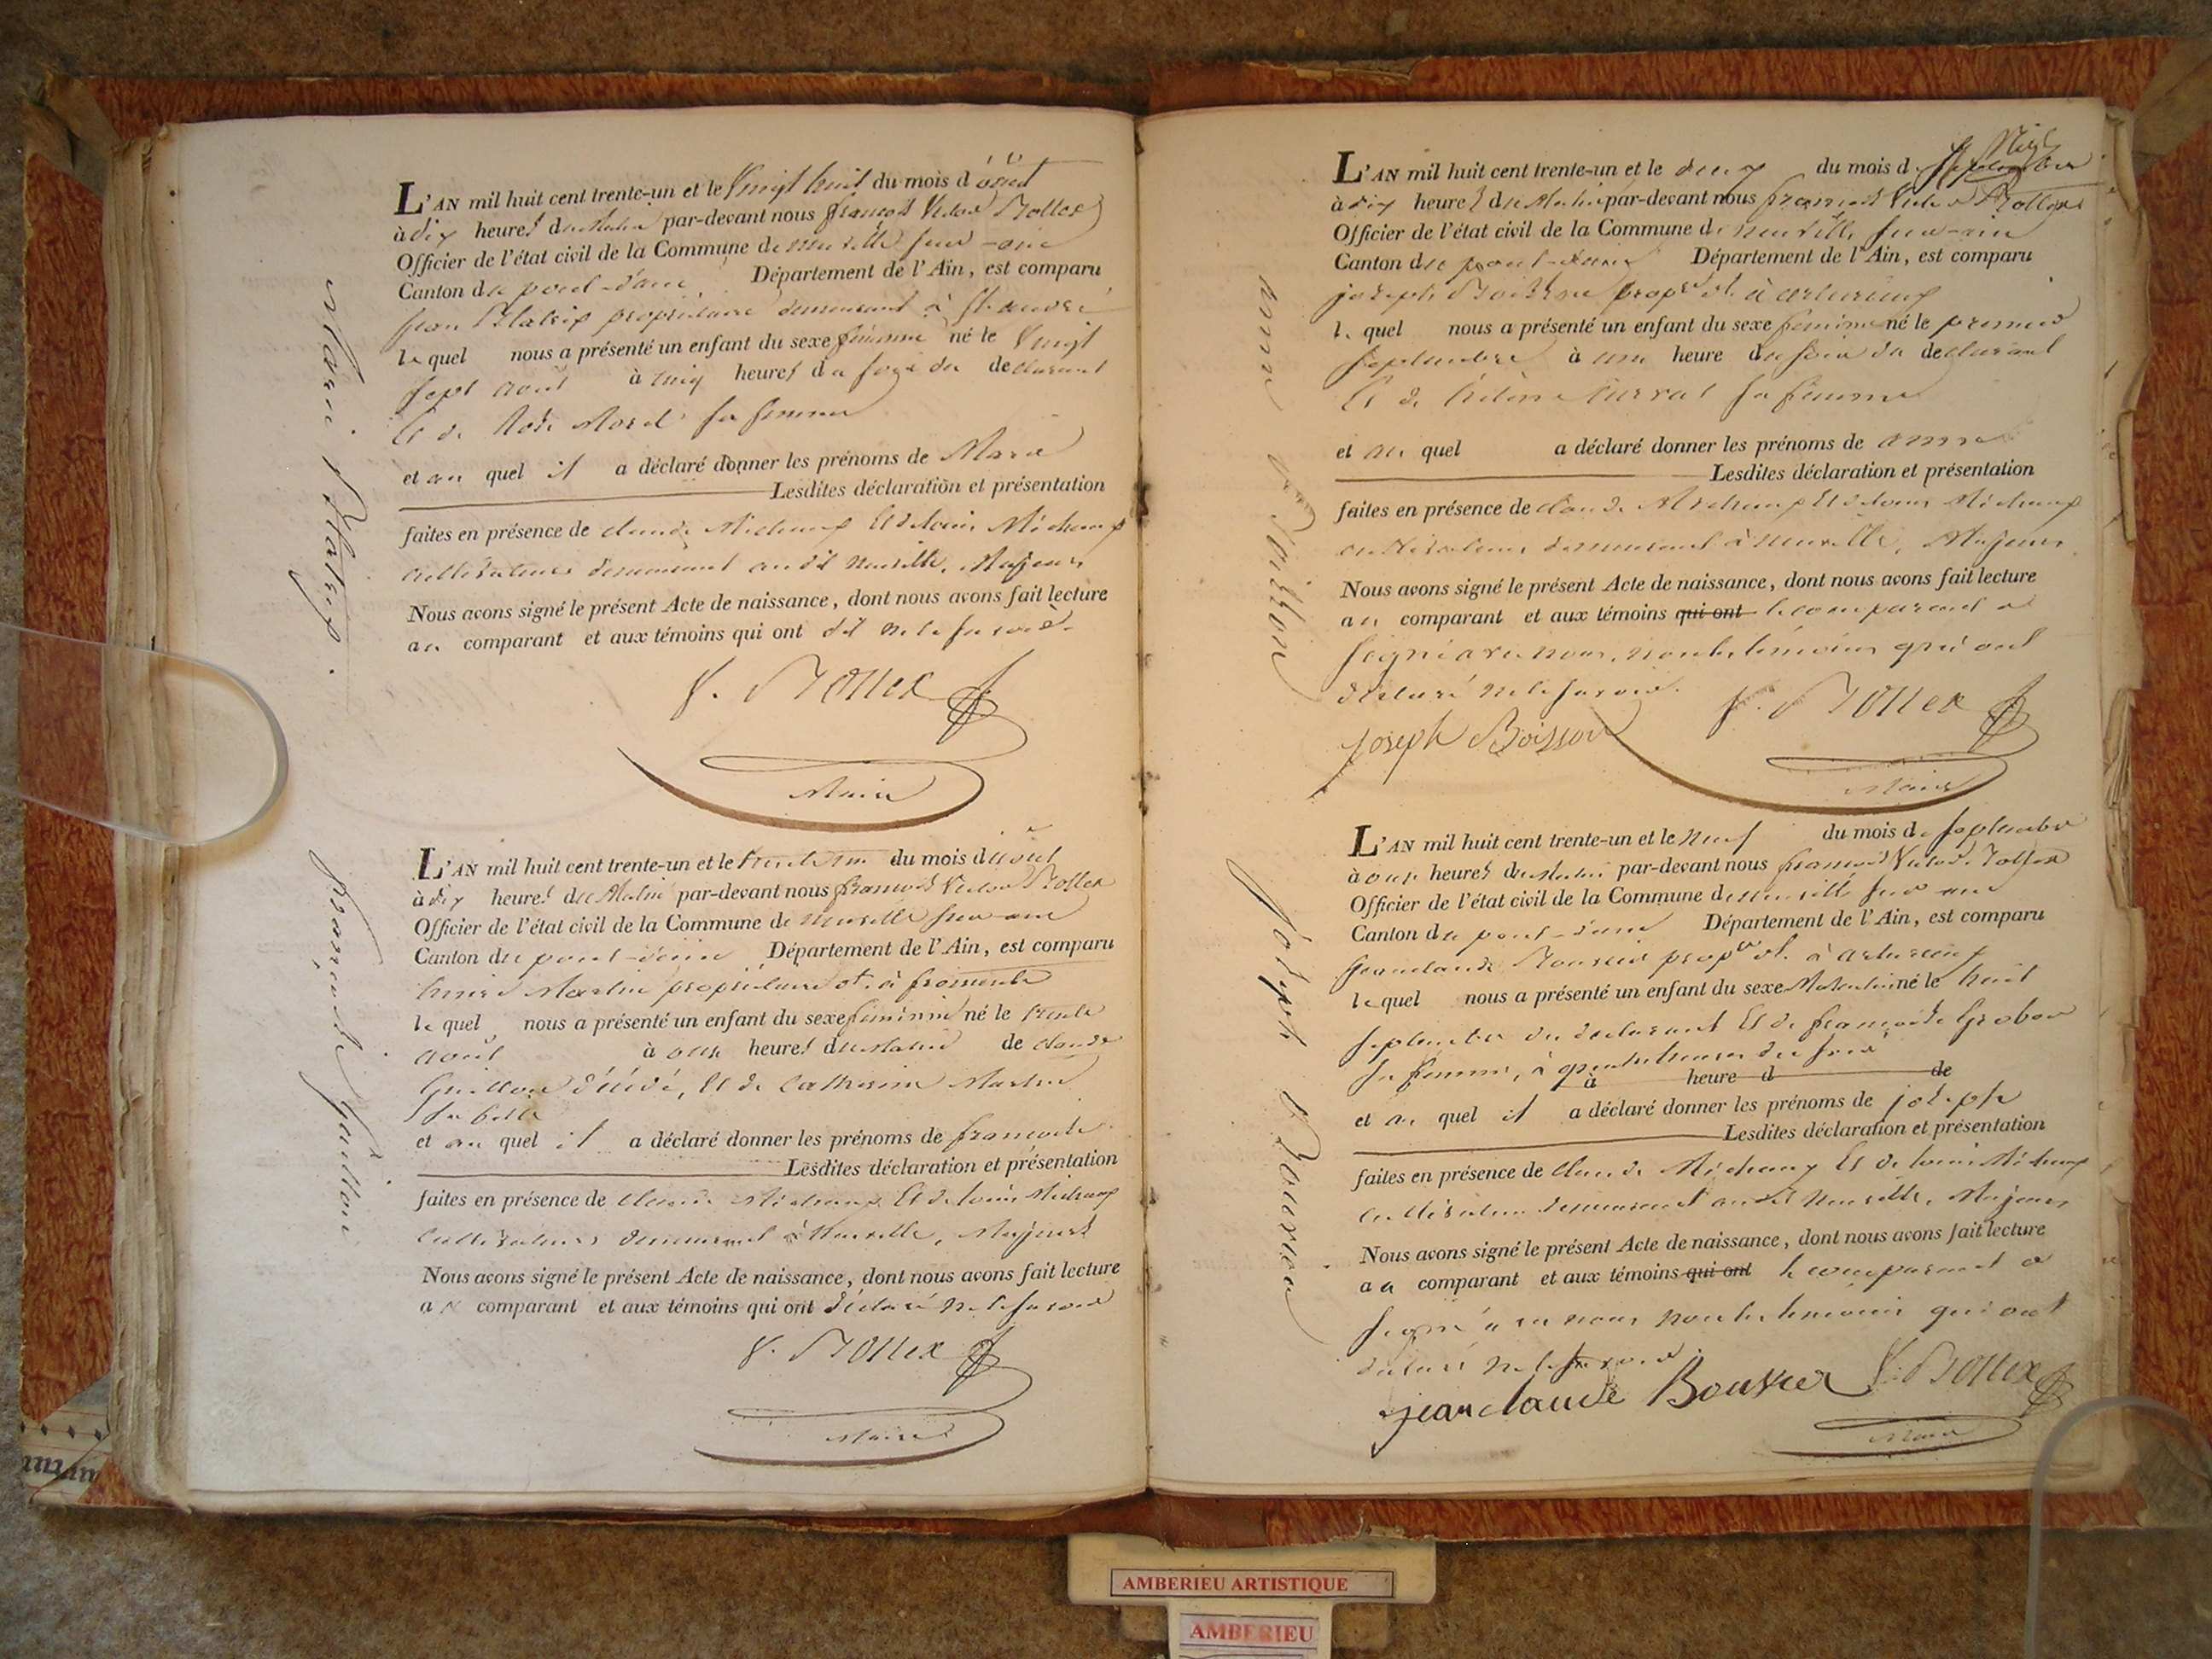 Marie Platrix.
L'AN mil huit cent trente-un et le vingt huit du mois d'août
à dix heures du Matin par-devant nous françois Victor Bollex
Officier de l'état civil de la Commune de neuville sur-ain
Canton du pont-d'ain, Département de l'Ain, est comparu
jean propriétaire demeurant à St andré
le quel nous a présenté un enfant du sexe féminin né le vingt
sept août à cinq heures du soir du declarant
Et de Rose Morel sa femme
et au quel il a déclaré donner les prénoms de Marie
Lesdites déclaration et présentation
faites en présence de claude Michaux Et de louis Michaux
cultivateurs demeurant audit neuville, Majeurs
Nous avons signé le présent Acte de naissance, dont nous avons fait lecture
au comparant et aux témoins qui ont dit ne le savoir.
V. Bollex
Maire
françoise Guillon
L'AN mil huit cent trente-un et le trente un du mois d'août
à dix heures du Matin par-devant nous françois Victor Bollex
Officier de l'état civil de la Commune de Neuville sur-ain
Canton du pont-d'ain Département de l'Ain, est comparu
Martin propriétaire dt. à fromente
le quel nous a présenté un enfant du sexe féminin né le trente
août à onze heures du Matin de claude
Guillon décédé, Et de Catherine Martin
sa fille
et au quel il a déclaré donner les prénoms de françoise
Lesdites déclaration et présentation
faites en présence de Claude Michaux Et de louis Michaux
Cultivateurs demeurant à Neuville, Majeurs
Nous avons signé le présent Acte de naissance, dont nous avons fait lecture
au comparant et aux témoins qui ont déclaré ne le savoir
V. Bollex
Maire
anne Boisson
L'AN mil huit cent trente-un et le deux du mois de septembre
à dix heures du Matin par-devant nous françois Victor Bollex
Officier de l'état civil de la Commune de neuville sur-ain
Canton du pont-d'ain Département de l'Ain, est comparu
joseph Boisson propre dt. à
le quel nous a présenté un enfant du sexe feminin né le premier
septembre à une heure du soir du declarant
Et de sa femme
et au quel a déclaré donner les prénoms de anne
Lesdites déclaration et présentation
faites en présence de claude Michaux Et de louis Michaux
cultivateurs demeurant à neuville, Majeurs
Nous avons signé le présent Acte de naissance, dont nous avons fait lecture
au comparant et aux témoins qui ont le comparant a
signé avec nous, non les témoins qui ont
déclaré ne le savoir.
Joseph Boisson V. Bollex
Maire
joseph Bouvier
L'AN mil huit cent trente-un et le neuf du mois de septembre
à onze heures du Matin par-devant nous françois Victor Bollex
Officier de l'état civil de la Commune de neuville sur ain
Canton du pont-d'ain Département de l'Ain, est comparu
jeanclaude Bouvier propre dt. à
le quel nous a présenté un enfant du sexe Masculin né le huit
septembre du declarant Et de françoise Grobon
sa femme, à quatre heures du soir
à heure d de
et au quel il a déclaré donner les prénoms de joseph
Lesdites déclaration et présentation
faites en présence de Claude Michaux Et de louis Michaux
cultivateurs demeurant audit Neuville, Majeurs
Nous avons signé le présent Acte de naissance, dont nous avons fait lecture
au comparant et aux témoins qui ont le comparant a
signé avec nous non les témoins qui ont
declaré ne le savoir.
jean claude Bouvier V. Bollex
Maire
AMBERIEU ARTISTIQUE
AMBERIEU